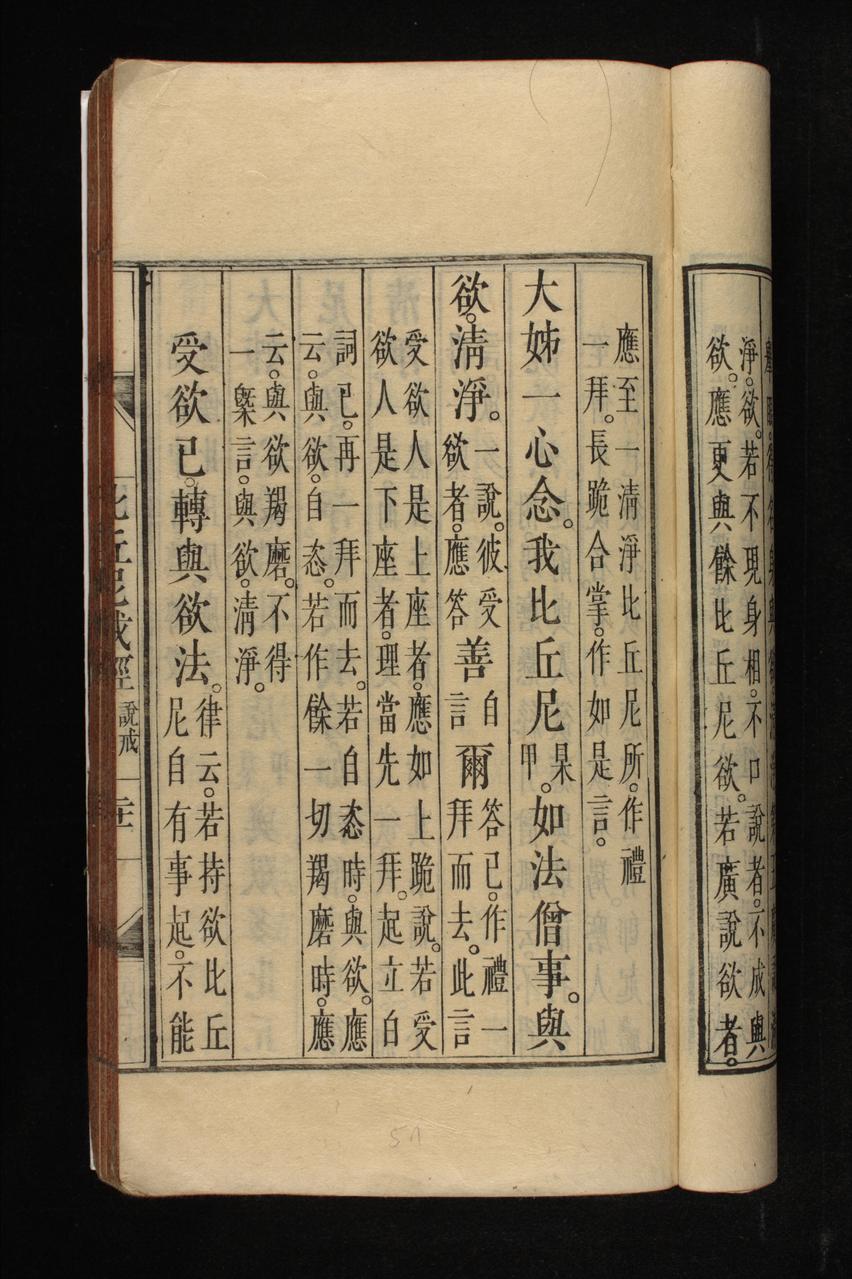 淨。欲。若不現身相。不口說者。不成與
欲。應更與餘比丘尼欲。若廣說欲者。
應至一清淨比丘尼所。作禮
一拜。長跪合掌。作如是言。
大姊一心念。我比丘尼某甲。如法僧事。與
欲。清淨。一說。彼受欲者。應答善自言爾答已。作禮一拜而去。此言
受欲人是上座者。應如上跪說。若受
欲人是下座者。理當先一拜。起立白
詞已。再一拜而去。若自恣時。與欲。應
云。與欲。自恣。若作餘一切羯磨時。應
云。與欲羯磨。不得
一槩言。與欲。清淨。
受欲已。轉與欲法。律云。若持欲比丘尼自有事起。不能
比丘尼戒經 說戒